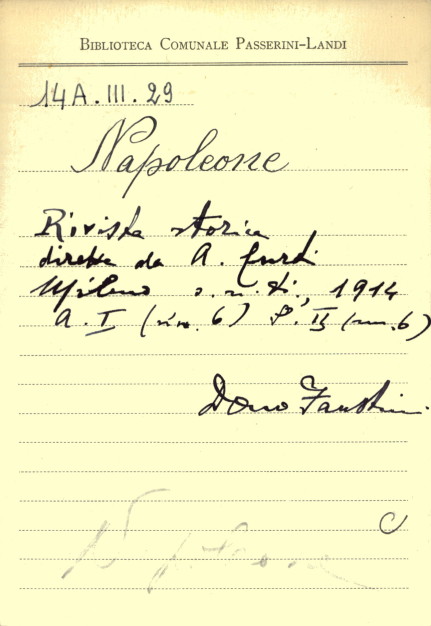 BIBLIOTECA COMUNALE PASSERINI-LANDI
14A. III. 29
Napoleone
Rivista storica
diretta da A.
Milano s. n. ti., 1914
A. I (nn. 6) II (nn. 6)
Dono Faustini
C